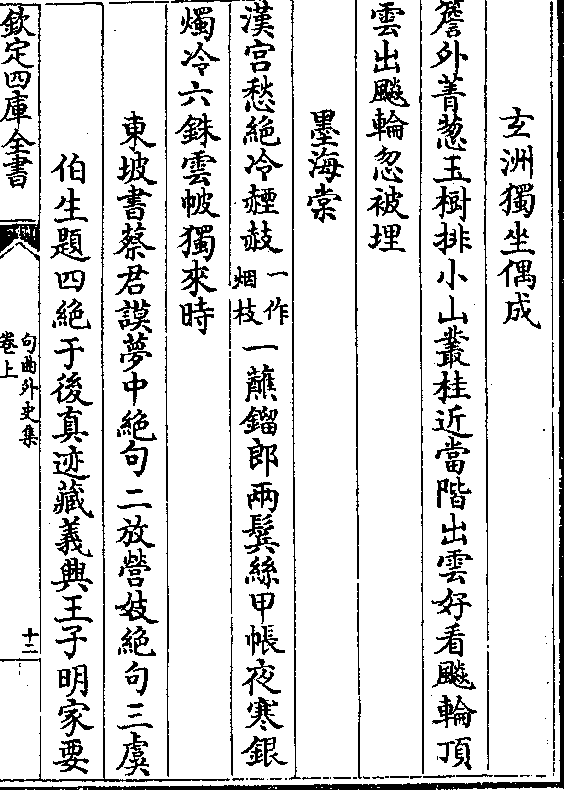 玄洲獨坐偶成
簷外菁葱玉樹排小山叢桂近當階出雲好看飈輪頂
雲出飈輪忽被埋
墨海棠
漢宫愁絶冷𧹞䞓一作烟枝一蘸鎦郎兩鬢絲甲帳夜寒銀
燭冷六銖雲帔獨來時
東坡書蔡君謨夢中絶句二放營妓絶句三虞
伯生題四絶于後真迹藏義興王子明家要
欽定四庫全書
句曲外史集
卷上
十二